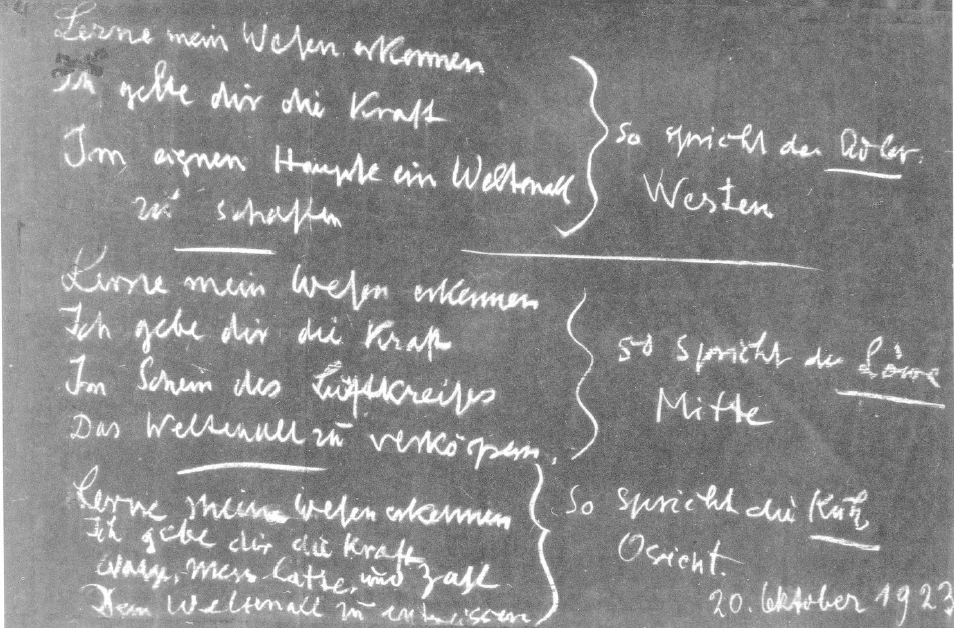 Lerne mein Wesen erkennen
Ich gebe dir die Kraft
Im eignen Haupte ein Weltenall
zu schaffen
So spricht der Adler.
Westen
Lerne mein Wesen erkennen
Ich gebe dir die Kraft
Im Schein des Luftkreises
Das Weltenall zu verkörpern.
So spricht der Löwe
Mitte
Lerne mein Wesen erkennen
Ich gebe dir die Kraft
Wage, Messlatte, und Zahl
Dem Weltenall zu entreissen
So spricht die Kuh
Orient.
20. Oktober 1923